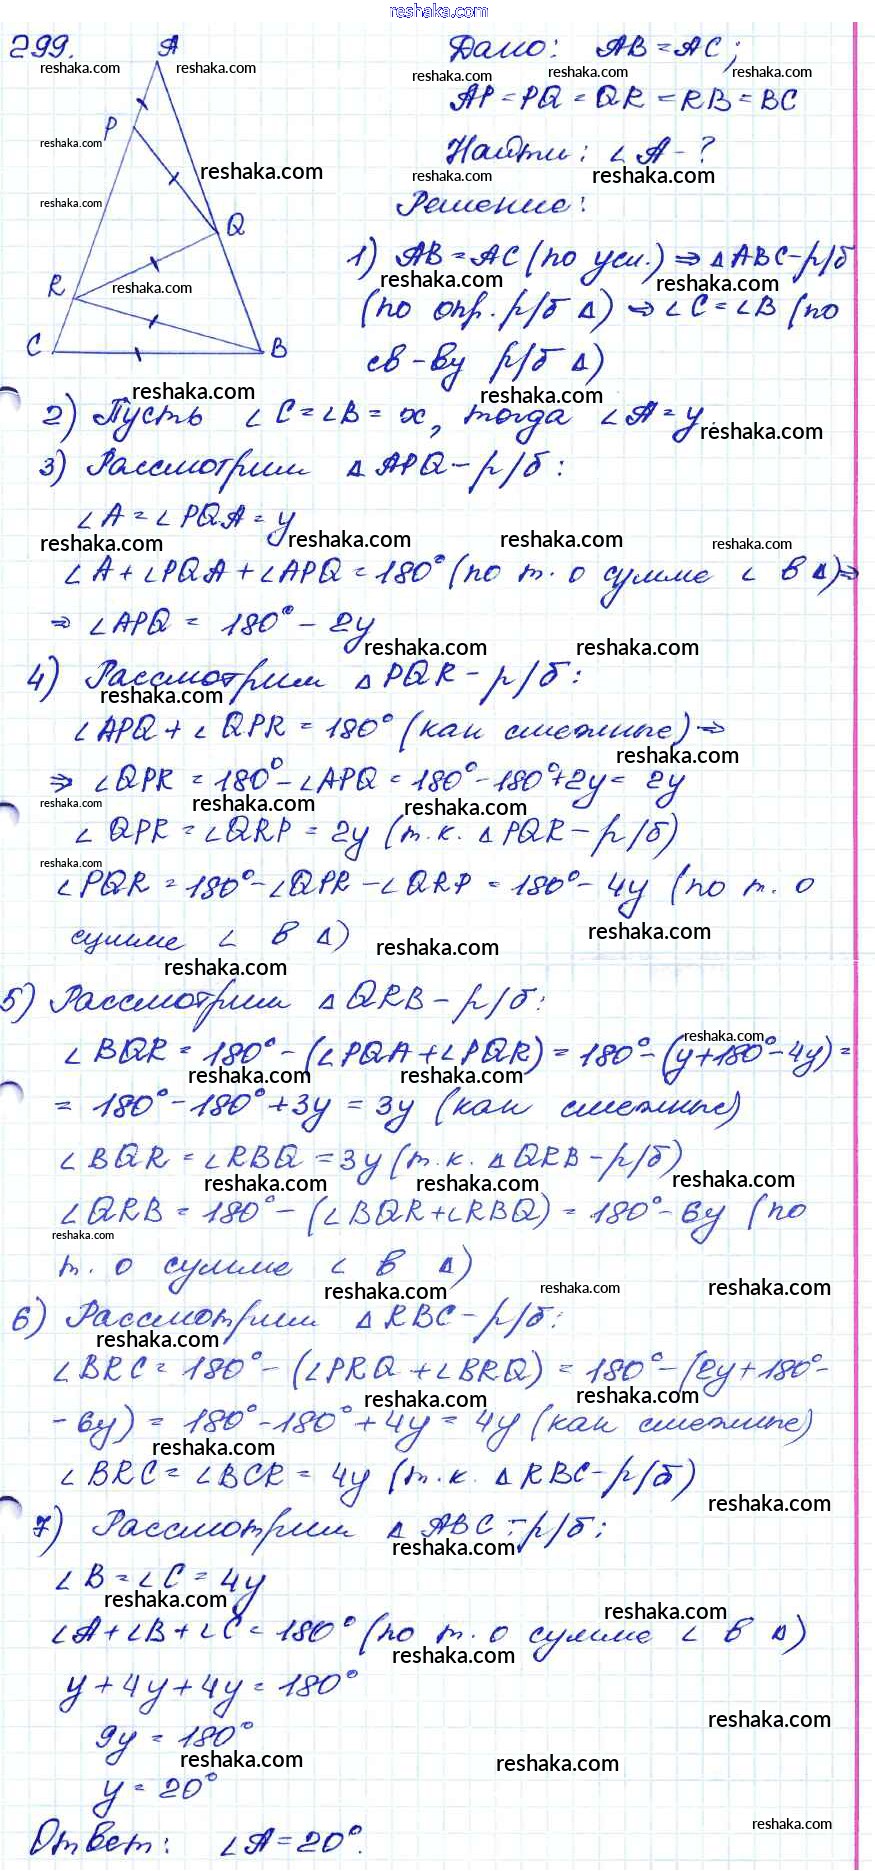 reshaka.com
299.
A
P
Q
R
C
B
Дано: AB = AC;
AP = PQ = QR = RB = BC
Найти: ∠A - ?
Решение:
1) AB = AC (по усл.) ⇒ ΔABC - р/б
(по опр. р/б Δ) ⇒ ∠C = ∠B (по
св-ву р/б Δ)
2) Пусть ∠C = ∠B = x, тогда ∠A = y.
3) Рассмотрим ΔAPQ - р/б:
∠A = ∠PQA = y
∠A + ∠PQA + ∠APQ = 180° (по т. о сумме ∠ в Δ) ⇒
⇒ ∠APQ = 180° - 2y
4) Рассмотрим ΔPQR - р/б:
∠APQ + ∠QPR = 180° (как смежные) ⇒
⇒ ∠QPR = 180° - ∠APQ = 180° - 180° + 2y = 2y
∠QPR = ∠QRP = 2y (т.к. ΔPQR - р/б)
∠PQR = 180° - ∠QPR - ∠QRP = 180° - 4y (по т. о
сумме ∠ в Δ)
5) Рассмотрим ΔQRB - р/б:
∠BQR = 180° - (∠PQA + ∠PQR) = 180° - (y + 180° - 4y) =
= 180° - 180° + 3y = 3y (как смежные)
∠BQR = ∠RBQ = 3y (т.к. ΔQRB - р/б)
∠QRB = 180° - (∠BQR + ∠RBQ) = 180° - 6y (по
т. о сумме ∠ в Δ)
6) Рассмотрим ΔRBC - р/б:
∠BRC = 180° - (∠PRQ + ∠BRQ) = 180° - (2y + 180° -
- 6y) = 180° - 180° + 4y = 4y (как смежные)
∠BRC = ∠BCR = 4y (т.к. ΔRBC - р/б)
7) Рассмотрим ΔABC - р/б:
∠B = ∠C = 4y
∠A + ∠B + ∠C = 180° (по т. о сумме ∠ в Δ)
y + 4y + 4y = 180°
9y = 180°
y = 20°
Ответ: ∠A = 20°.